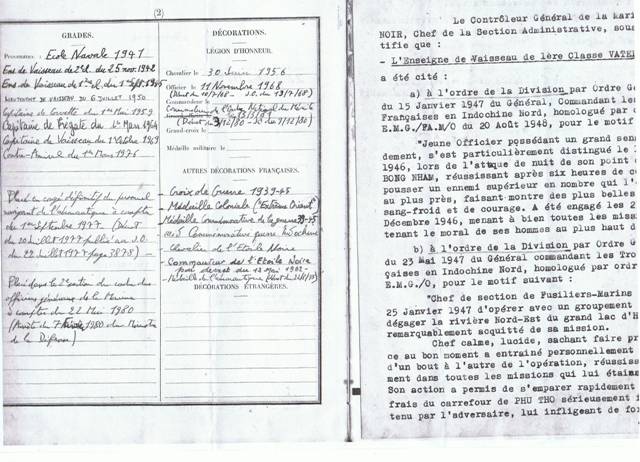 (2)
GRADES.
Provenance : Ecole Navale 1941
Ens. de Vaisseau de 2e cl. du 25 nov. 1942
Ens. de Vaisseau de 1ère cl. du 1er Sept. 1945
LIEUTENANT DE VAISSEAU DU 6 JUILLET 1950
Capitaine de Corvette du 1er Mai 1959
Capitaine de Frégate du 1er Mars 1964
Capitaine de Vaisseau du 1er Octobre 1969
Contre-Amiral du 1er Mars 1976
Placé en congé définitif du personnel
navigant de l'aéronautique à compter
du 1er Septembre 1977 (Décret
du 20 juillet 1977 publié au J.O.
du 22 juillet 1977 page 3878)
Placé dans la 2e section du cadre des
officiers généraux de la Marine
à compter du 22 Mai 1980
du Ministre
de la Défense)
DÉCORATIONS.
LÉGION D'HONNEUR.
Chevalier le 30 Juin 1956
Officier le 11 Novembre 1968
Commandeur le
Commandeur de l'Ordre National du Mérite
(Décret du 3/12/80 - J.O. du 7/12/80)
Grand-croix le
Médaille militaire le
AUTRES DÉCORATIONS FRANÇAISES.
- Croix de Guerre 1939-45
- Médaille Coloniale ("Extrême Orient")
- Médaille Commémorative de la guerre 39-45
Commémorative guerre Indochine
- Chevalier de l'Etoile Noire
- Commandeur de l'Etoile Noire
par décret du 12 Mai 1962 -
- Médaille de l'aéronautique
DÉCORATIONS ÉTRANGÈRES.
Le Contrôleur Général de la Mari
NOIR, Chef de la Section Administrative, sou
tifie que :
- L'Enseigne de Vaisseau de 1ère Classe VATE
a été cité :
a) à l'ordre de la Division par Ordre G
du 15 Janvier 1947 du Général, Commandant les
Françaises en Indochine Nord, homologué par
E.M.G./FA.M/O du 20 Août 1948, pour le motif
"Jeune Officier possédant un grand sens
dement, s'est particulièrement distingué le
1946, lors de l'attaque de nuit de son point
BONG NHAM, réussissant après six heures de c
pousser un ennemi supérieur en nombre qui l'
au plus près, faisant montre des plus belles
sang-froid et de courage. A été engagé les 2
Décembre 1946, menant à bien toutes les miss
tenant le moral de ses hommes au plus haut d
b) à l'ordre de la Division par Ordre G
du 23 Mai 1947 du Général commandant les Tro
çaises en Indochine Nord, homologué par ordr
E.M.G./O, pour le motif suivant :
"Chef de section de Fusiliers-Marins
25 Janvier 1947 d'opérer avec un groupement
dégager la rivière Nord-Est du grand lac d'H
remarquablement acquitté de sa mission.
Chef calme, lucide, sachant faire pr
ce au bon moment a entrainé personnellement
d'un bout à l'autre de l'opération, réussiss
ment dans toutes les missions qui lui étaien
Son action a permis de s'emparer rapidement
frais du carrefour de PHU THO sérieusement
tenu par l'adversaire, lui infligeant de for